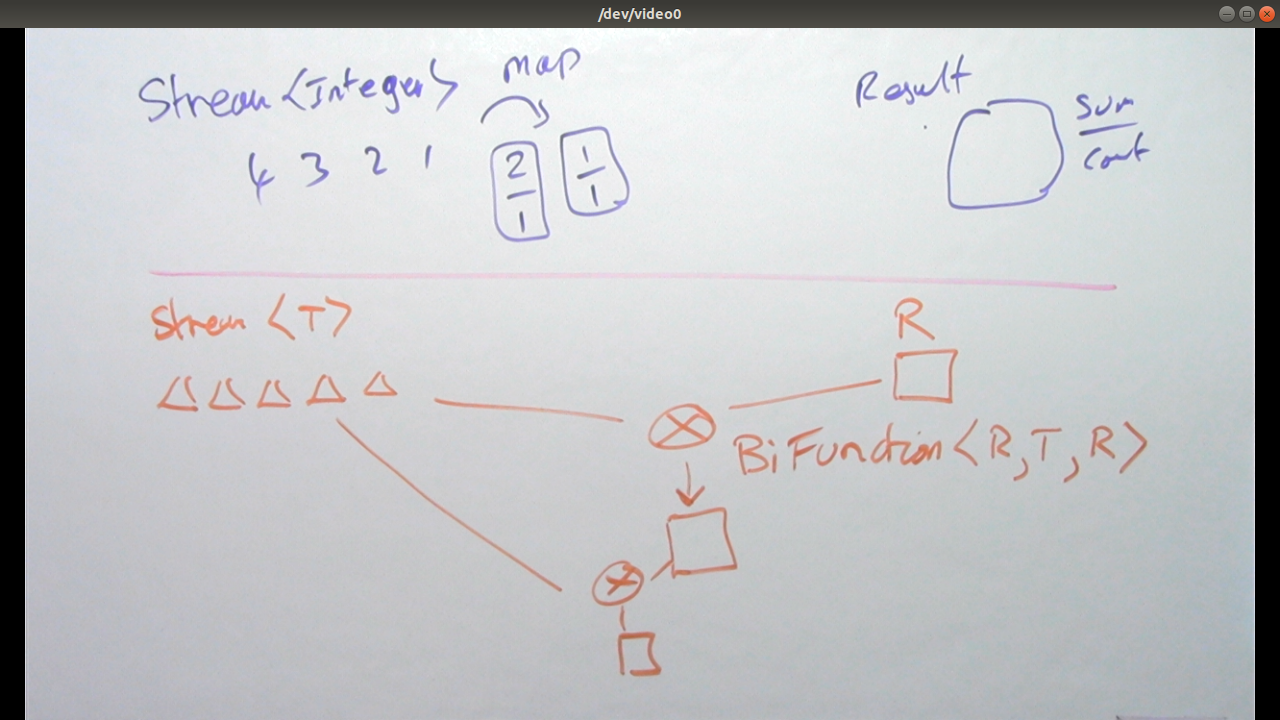 /dev/video0
Stream <Integer>
map
Result
4 3 2 1
2
1
1
1
Sum
Count
Stream <T>
R
BiFunction<R,T,R>